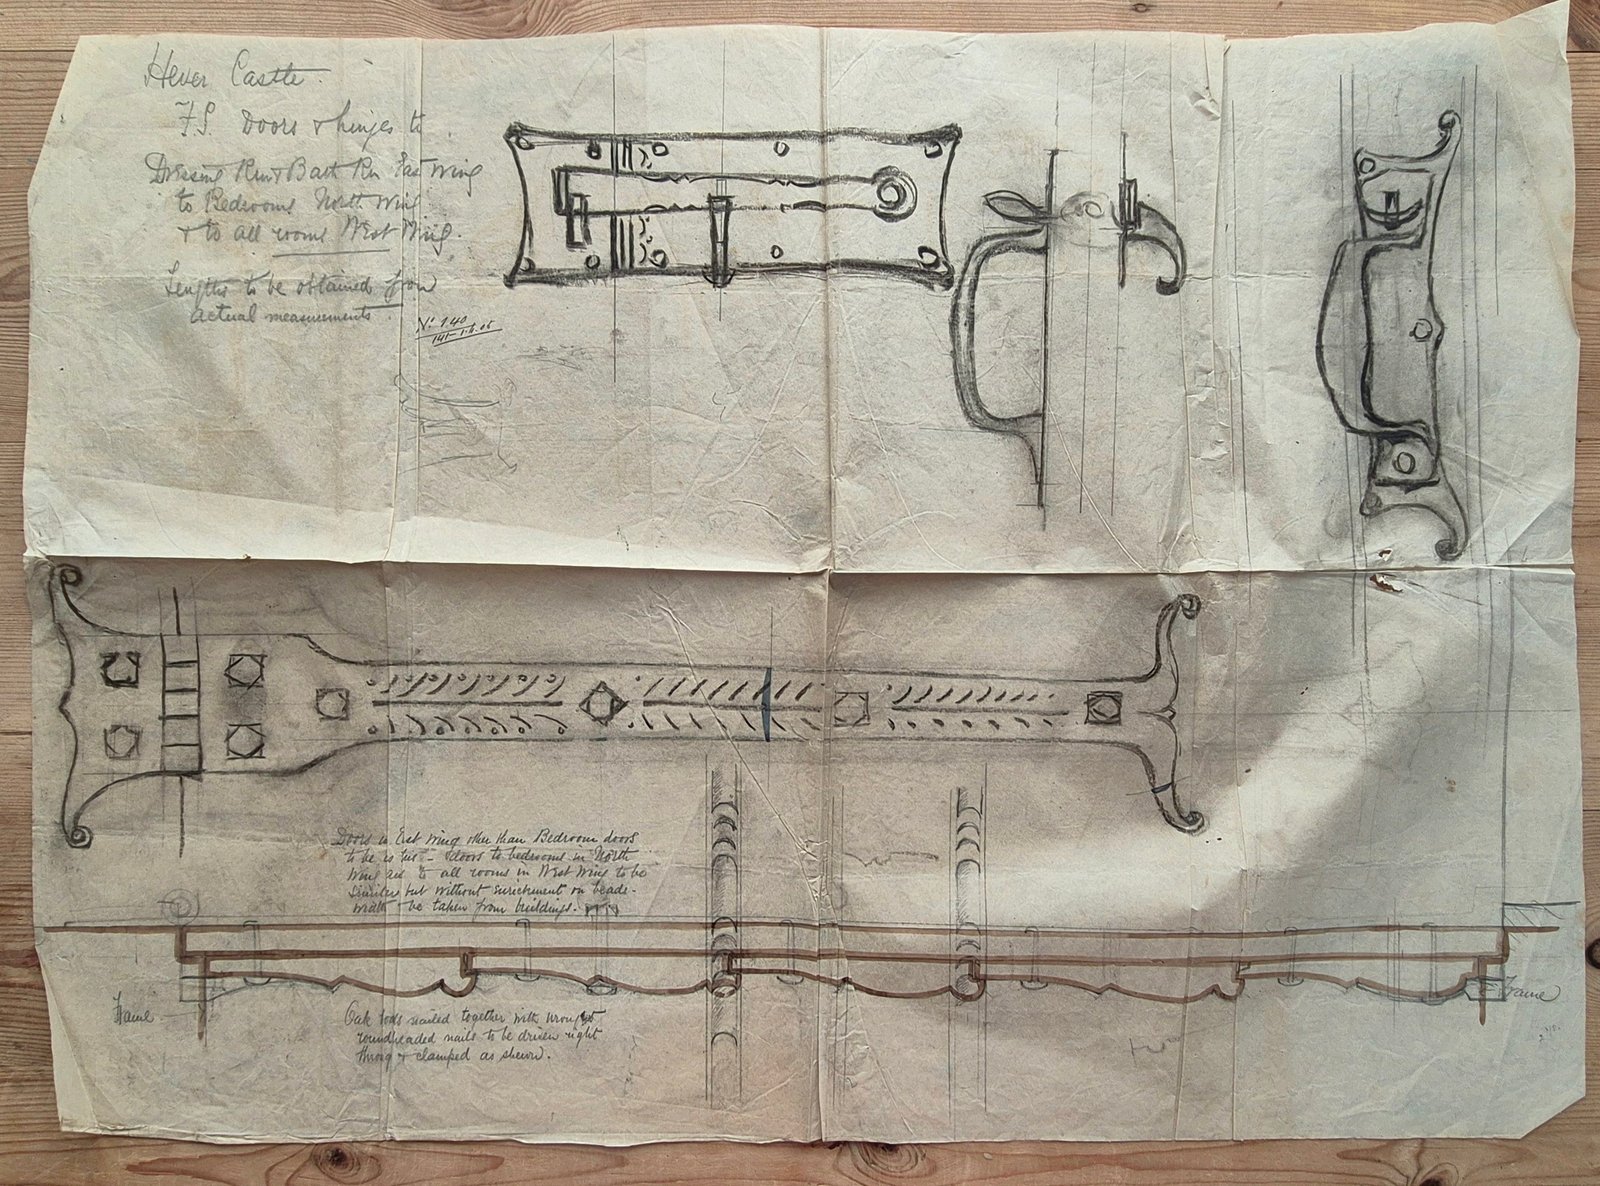 Hever Castle.
F.S. Doors & hinges to
Dressing Rm & Bath Rm East Wing
to Bedrooms North Wing
& to all rooms West Wing.
Lengths to be obtained from
actual measurements
No. 140
Doors in East Wing other than Bedroom doors
to be as this – doors to bedrooms in North
Wing and to all rooms in West Wing to be
similar but without enrichment on beads –
width to be taken from buildings.
Frame
Frame
Oak bds nailed together with wrought
roundheaded nails to be driven right
throug & clamped as shewn.